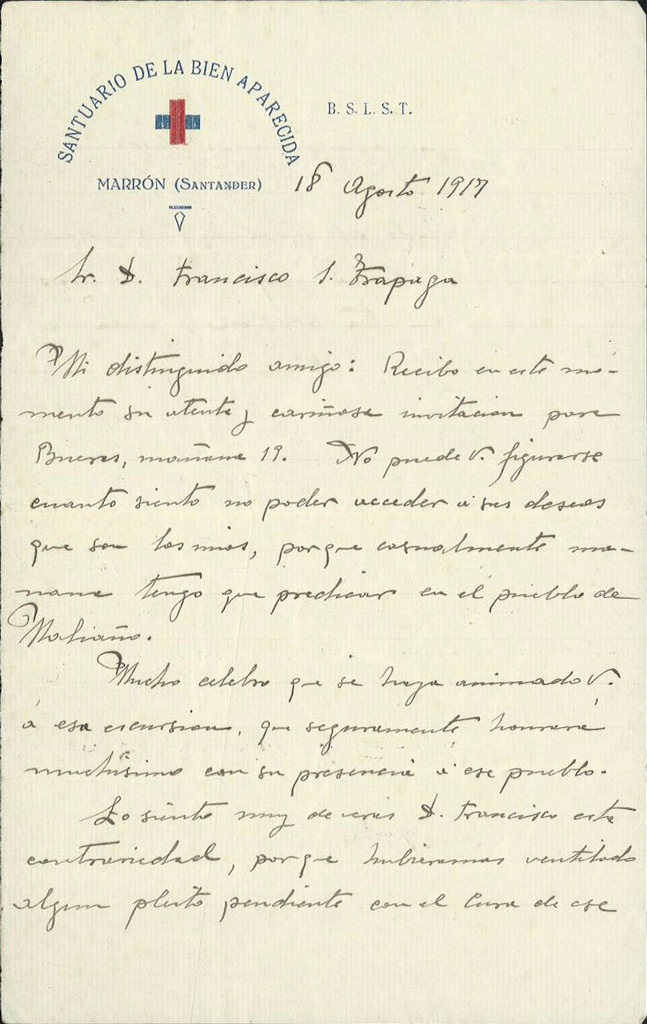 SANTUARIO DE LA BIEN APARECIDA
B. S. L. S. T.
MARRÓN (SANTANDER)
18 Agosto 1917
Sr. D. Francisco S. Trapaga
Mi distinguido amigo: Recibo en este mo-
mento su atenta y cariñosa invitacion para
Bueras, mañana 19. No puede V. figurarse
cuanto siento no poder acceder á sus deseos
que son los mios, porque casualmente ma-
ñana tengo que predicar en el pueblo de
Maliaño.
Mucho celebro que se haya animado V.
á esa escursion, que seguramente honrará
muchisimo con su presencia á ese pueblo.
Lo siento muy de veras D. Francisco esta
contrariedad, porque hubieramos ventilado
algun pleito pendiente con el Cura de ese